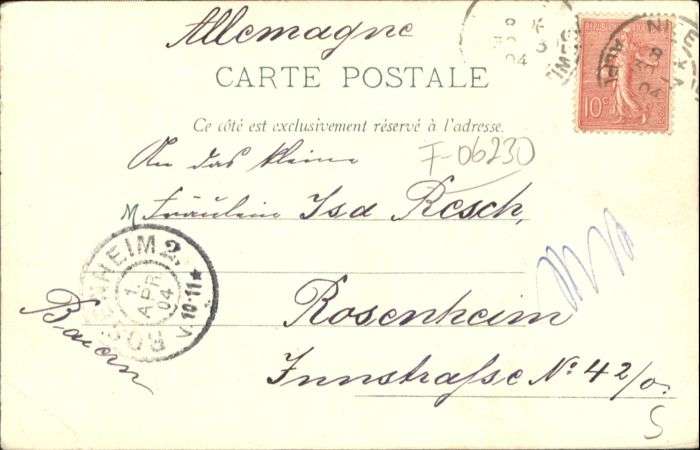 Allemagne
CARTE POSTALE
Ce côté est exclusivement réservé à l'adresse.
An das kleine
F-06230
M Fräulein Isa Resch,
Rosenheim
Innstraße No. 42/0.
Bayern
ROSENHEIM 2.
1.
APR
04
V. 10-11 ★
10c
S